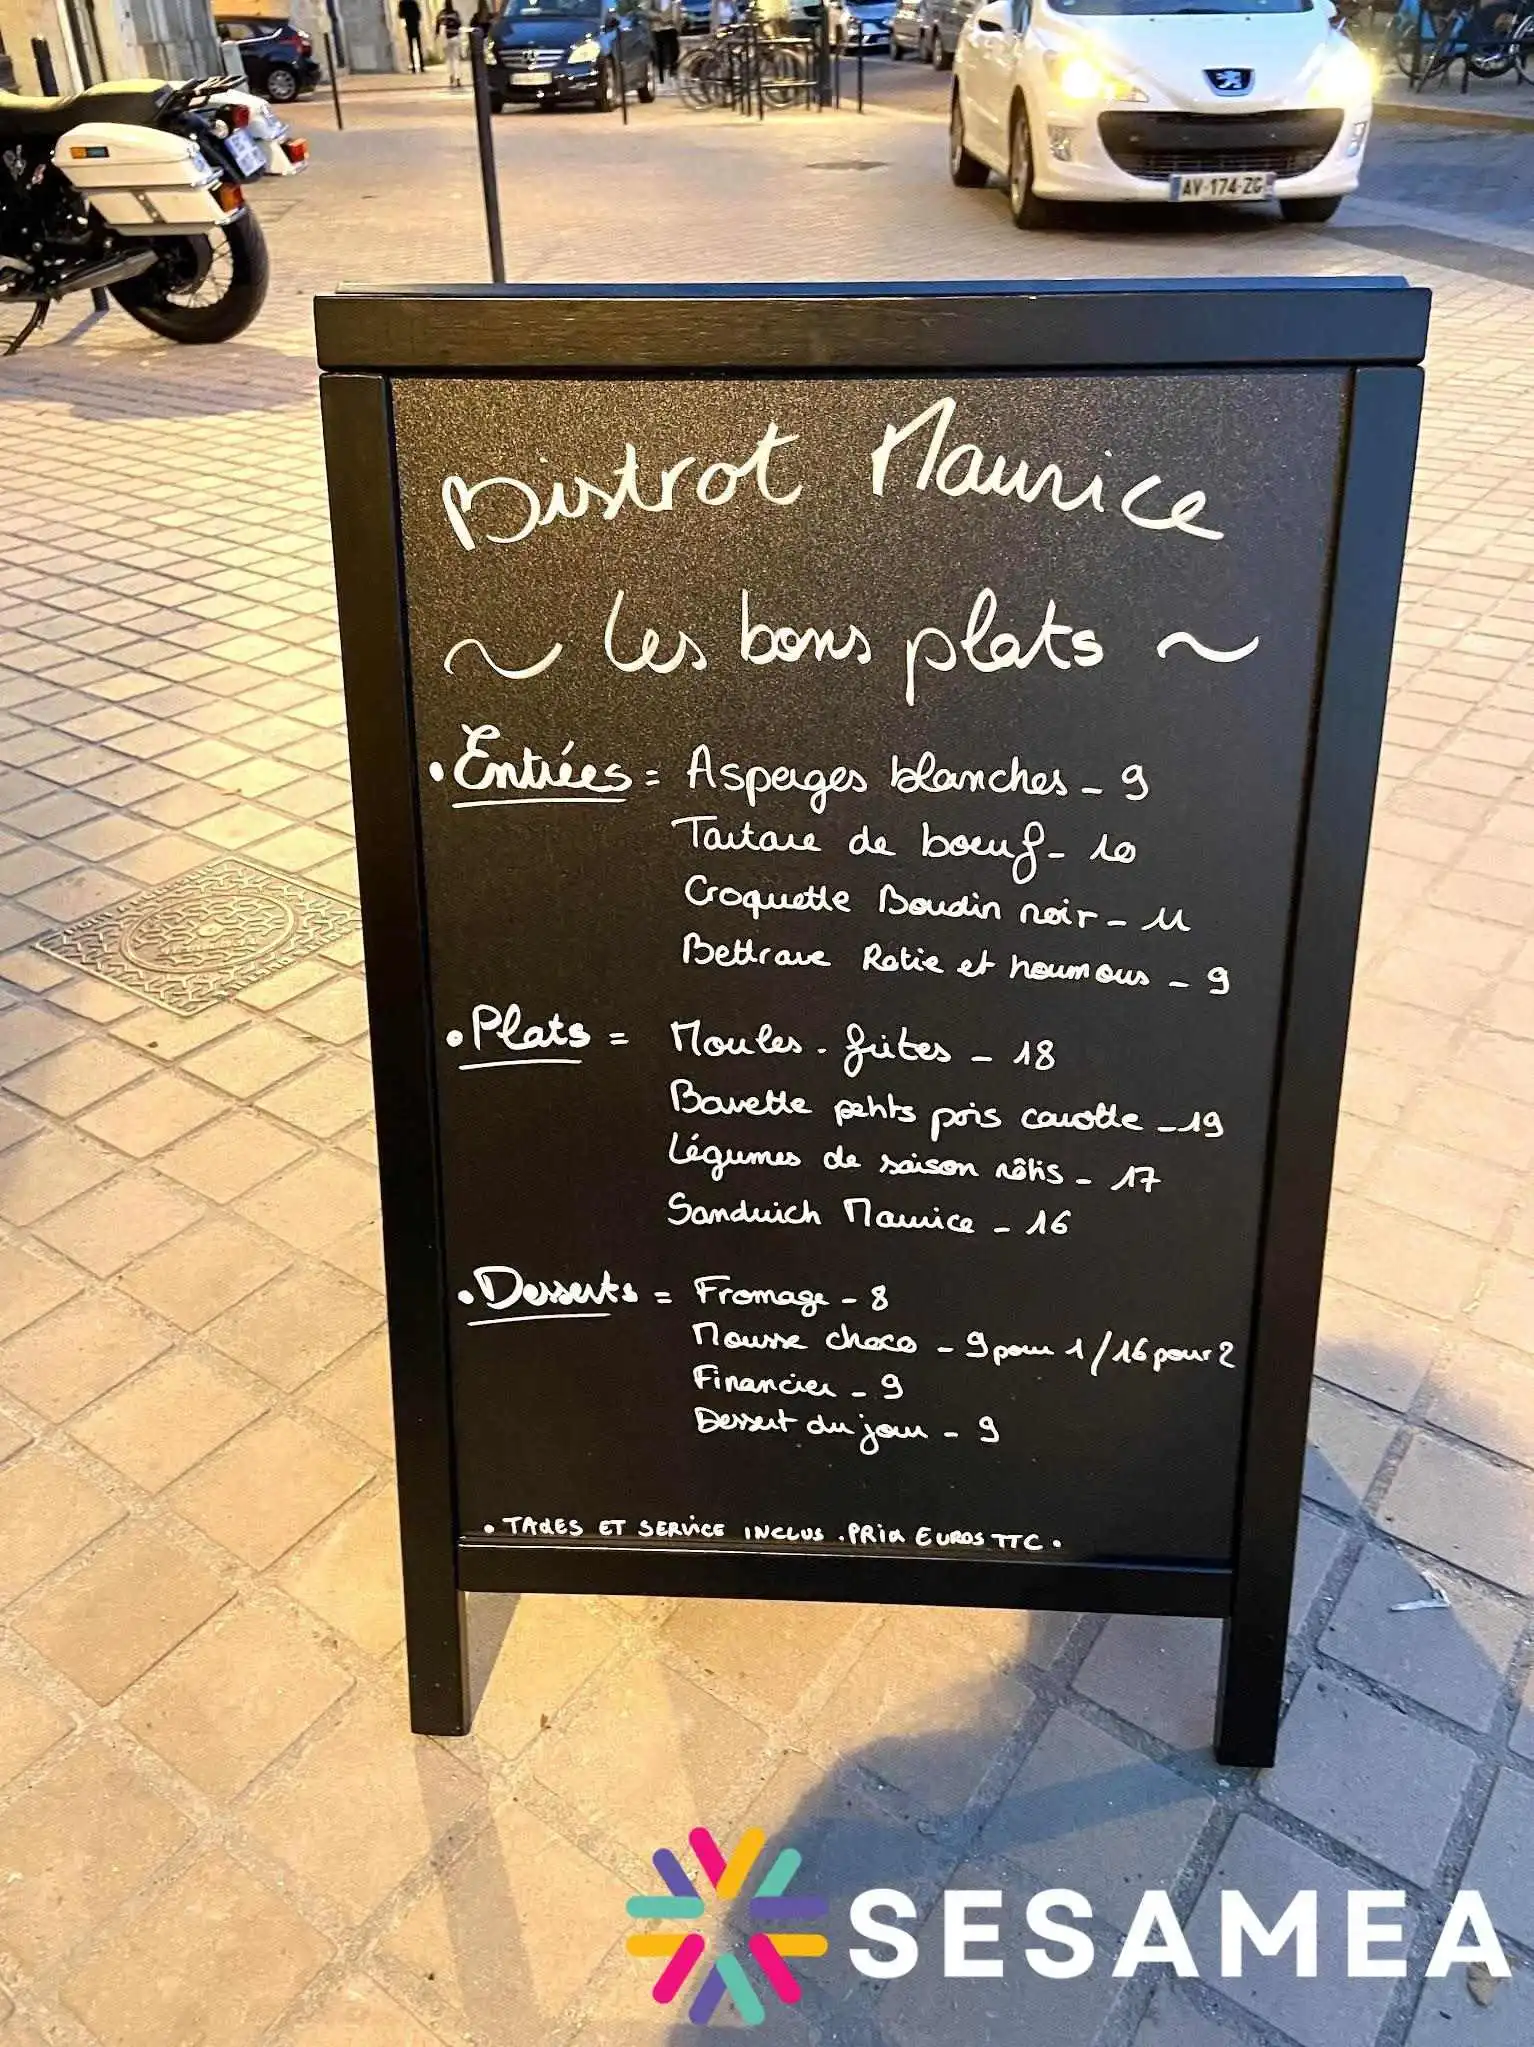 AV-174-ZG
Bistrot Maurice
~ Les bons plats ~
• Entrées = Asperges blanches - 9
Tartare de boeuf - 10
Croquette Boudin noir - 11
Bettrave Rotie et houmous - 9
• Plats = Moules - frites - 18
Bavette petits pois carotte - 19
Légumes de saison rôtis - 17
Sandwich Maurice - 16
• Desserts = Fromage - 8
Mousse choco - 9 pour 1 / 16 pour 2
Financier - 9
Dessert du jour - 9
• TAXES ET SERVICE INCLUS . PRIX EUROS TTC •
SESAMEA